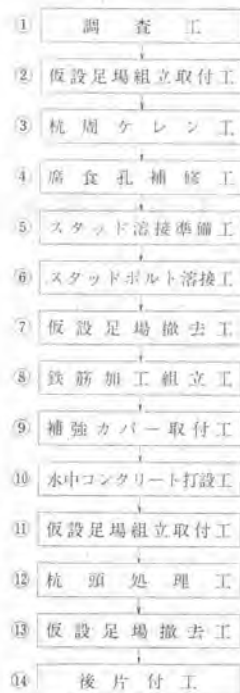 ① 調査工
② 仮設足場組立取付工
③ 杭周ケレン工
④ 腐食孔補修工
⑤ スタッド溶接準備工
⑥ スタッドボルト溶接工
⑦ 仮設足場撤去工
⑧ 鉄筋加工組立工
⑨ 補強カバー取付工
⑩ 水中コンクリート打設工
⑪ 仮設足場組立取付工
⑫ 杭頭処理工
⑬ 仮設足場撤去工
⑭ 後片付工